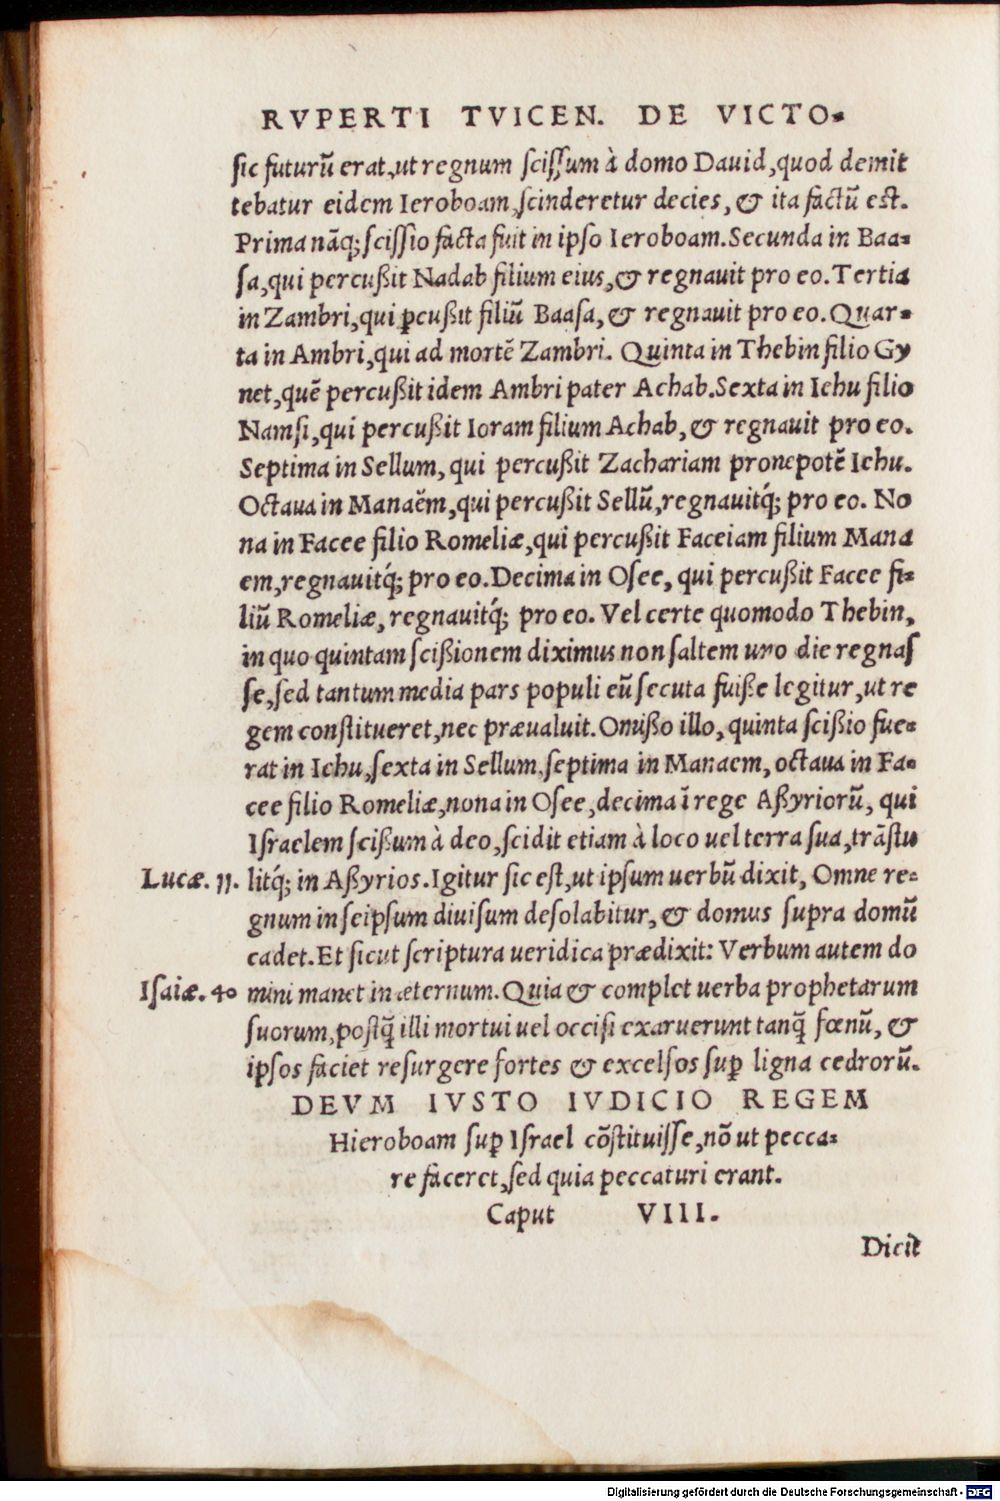 RVPERTI TVICEN. DE VICTO-
sic futurũ erat, ut regnum scissum à domo Dauid, quod demit
tebatur eidem Ieroboam, scinderetur decies, & ita factũ est.
Prima nãq; scissio facta fuit in ipso Ieroboam. Secunda in Baa-
sa, qui percußit Nadab filium eius, & regnauit pro eo. Tertia
in Zambri, qui ꝑcußit filiũ Baasa, & regnauit pro eo. Quar-
ta in Ambri, qui ad mortẽ Zambri. Quinta in Thebin filio Gy
net, quẽ percußit idem Ambri pater Achab. Sexta in Iehu filio
Namsi, qui percußit Ioram filium Achab, & regnauit pro eo.
Septima in Sellum, qui percußit Zachariam pronepotẽ Iehu.
Octaua in Manaẽm, qui percußit Sellũ, regnauitq́; pro eo. No
na in Facee filio Romeliæ, qui percußit Faceiam filium Mana
em, regnauitq́; pro eo. Decima in Osee, qui percußit Facee fi-
liũ Romeliæ, regnauitq́; pro eo. Vel certe quomodo Thebin,
in quo quintam scißionem diximus non saltem uno die regnas
se, sed tantum media pars populi eũ secuta fuiße legitur, ut re
gem constitueret, nec præualuit. Omißo illo, quinta scißio fue-
rat in Iehu, sexta in Sellum, septima in Manaem, octaua in Fa-
cee filio Romeliæ, nona in Osee, decima ĩ rege Aßyriorũ, qui
Israelem scißum à deo, scidit etiam à loco uel terra sua, trãstu
Lucæ. 11. litq́; in Aßyrios. Igitur sic est, ut ipsum uerbũ dixit, Omne re-
gnum in seipsum diuisum desolabitur, & domus supra domũ
cadet. Et sicut scriptura ueridica prædixit: Verbum autem do
Isaiæ. 40 mini manet in æternum. Quia & complet uerba prophetarum
suorum, postq̃ illi mortui uel occisi exaruerunt tanq̃ fœnũ, &
ipsos faciet resurgere fortes & excelsos suꝑ ligna cedrorũ.
DEVM IVSTO IVDICIO REGEM
Hieroboam suꝑ Israel cõstituisse, nõ ut pecca-
re faceret, sed quia peccaturi erant.
Caput VIII.
Dicit
Digitalisierung gefördert durch die Deutsche Forschungsgemeinschaft - DFG